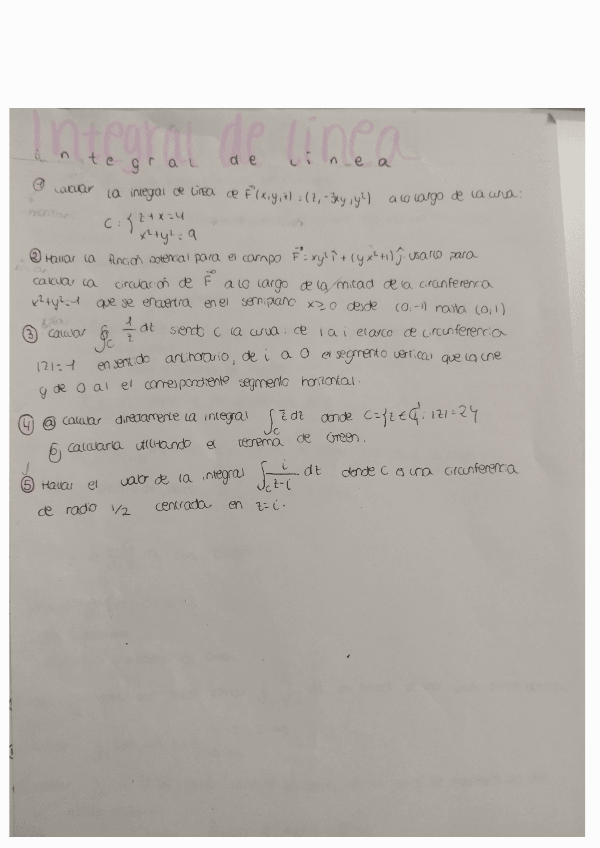 Integral de linea
integral de linea
① Calcular la integral de linea de F(x,y,z) = (z, -3xy, y²) a lo largo de la curva:
C: { z+x=4
x²+y²=9
② Hallar la función potencial para el campo F=xy² i + (yx²+1) j usarlo para
calcular la circulación de F a lo largo de la mitad de la circunferencia
x²+y²=1 que se encuentra en el semiplano x≥0 desde (0,-1) hasta (0,1)
③ Calcular ∮c 1/z dz siendo C la curva: de 1 a i el arco de circunferencia
|z|=1 en sentido antihorario, de i a 0 el segmento vertical que la une
y de 0 a 1 el correspondiente segmento horizontal.
④ ⓐ calcular directamente la integral ∫c z̄ dz donde C={z ∈ ℂ: |z|=2}
ⓑ calcularla utilizando el teorema de Green.
⑤ Hallar el valor de la integral ∫c i/(z-i) dz donde C es una circunferencia
de radio 1/2 centrada en z=i.